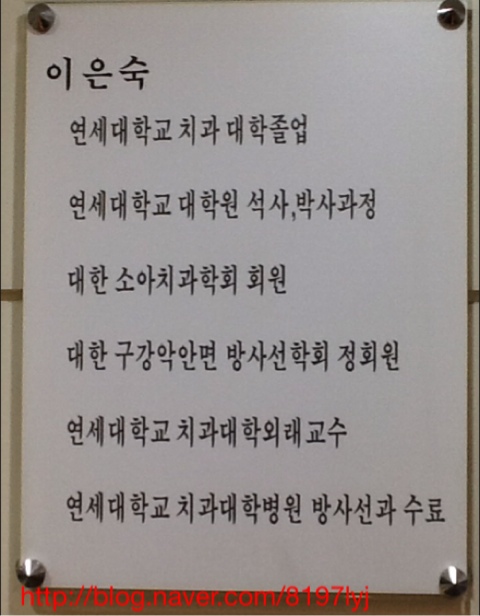 이은숙
연세대학교 치과 대학졸업
연세대학교 대학원 석사,박사과정
대한 소아치과학회 회원
대한 구강악안면 방사선학회 정회원
연세대학교 치과대학외래교수
연세대학교 치과대학병원 방사선과 수료
http://blog.naver.com/8197lyj